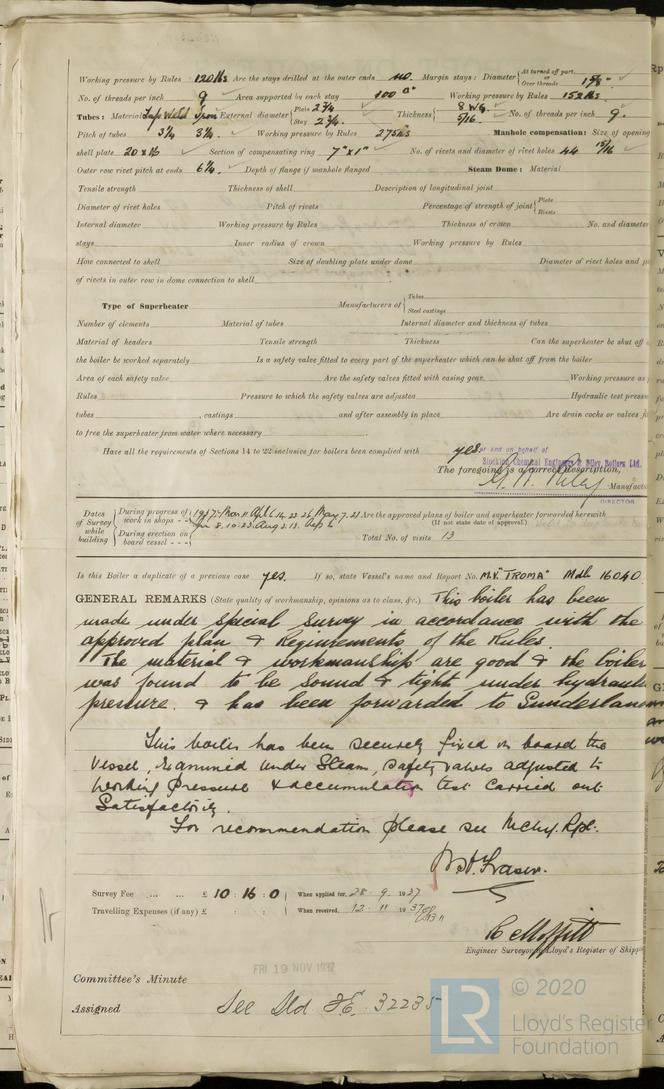 Working pressure by Rules 120 lbs Are the stays drilled at the outer ends no. Margin stays: Diameter { At turned off part, or Over threads 1 5/8"
No. of threads per inch 9 Area supported by each stay 100 □" Working pressure by Rules 152 lbs
Tubes: Material Lap Weld Iron External diameter { Plain 2 3/4 Stay 2 3/4 Thickness { 8 W.G. 5/16. No. of threads per inch 9.
Pitch of tubes 3 3/4 3 3/4 Working pressure by Rules 275 lbs Manhole compensation: Size of opening
shell plate 20 x 16 Section of compensating ring 7" x 1" No. of rivets and diameter of rivet holes 44 15/16
Outer row rivet pitch at ends 6 3/4 Depth of flange if manhole flanged Steam Dome: Material
Tensile strength Thickness of shell Description of longitudinal joint
Diameter of rivet holes Pitch of rivets Percentage of strength of joint { Plate Rivets
Internal diameter Working pressure by Rules Thickness of crown No. and diameter
stays Inner radius of crown Working pressure by Rules
How connected to shell Size of doubling plate under dome Diameter of rivet holes and
of rivets in outer row in dome connection to shell
Type of Superheater Manufacturers of { Tubes Steel castings
Number of elements Material of tubes Internal diameter and thickness of tubes
Material of headers Tensile strength Thickness Can the superheater be shut off
the boiler be worked separately Is a safety valve fitted to every part of the superheater which can be shut off from the boiler
Area of each safety valve Are the safety valves fitted with easing gear Working pressure as
Rules Pressure to which the safety valves are adjusted Hydraulic test pressure
tubes , castings and after assembly in place Are drain cocks or valves
to free the superheater from water where necessary
Have all the requirements of Sections 14 to 22 inclusive for boilers been complied with yes.
For and on behalf of
Stockton Chemical Engineers & Riley Boilers Ltd.
The foregoing is a correct description,
Riley Manufact
DIRECTOR
Dates of Survey while building { During progress of work in shops - - 1937: Mar 11 Apl 6. 14. 22. 26. May 7. 21
8. 10. 23. Aug 3. 13. Sep 6
During erection on board vessel - - -
Are the approved plans of boiler and superheater forwarded herewith
(If not state date of approval.)
Total No. of visits 13
Is this Boiler a duplicate of a previous case yes. If so, state Vessel's name and Report No. M.V. "TROMA" Mdb 16040.
GENERAL REMARKS (State quality of workmanship, opinions as to class, &c.) This boiler has been
made under special survey in accordance with the
approved plan & Requirements of the Rules.
The material & workmanship are good & the boiler
was found to be sound & tight under hydraulic
pressure. & has been forwarded to Sunderland
This boiler has been securely fixed on board the
Vessel, Examined under Steam, safety valves adjusted to
Working Pressure & accumulation test carried out
Satisfactorily.
For recommendation please see Mchy. Rpt.
Fraser.
Survey Fee ... ... £ 10 : 16 : 0 When applied for, 28 - 9 - 1937
Travelling Expenses (if any) £ : : When received, 12 - 11 1937
C Moffitt
Engineer Surveyor to Lloyd's Register of Shipp
FRI 19 NOV 1937
Committee's Minute
Assigned See Sld. F.E. 32235
LR © 2020
Lloyd's Register
Foundation